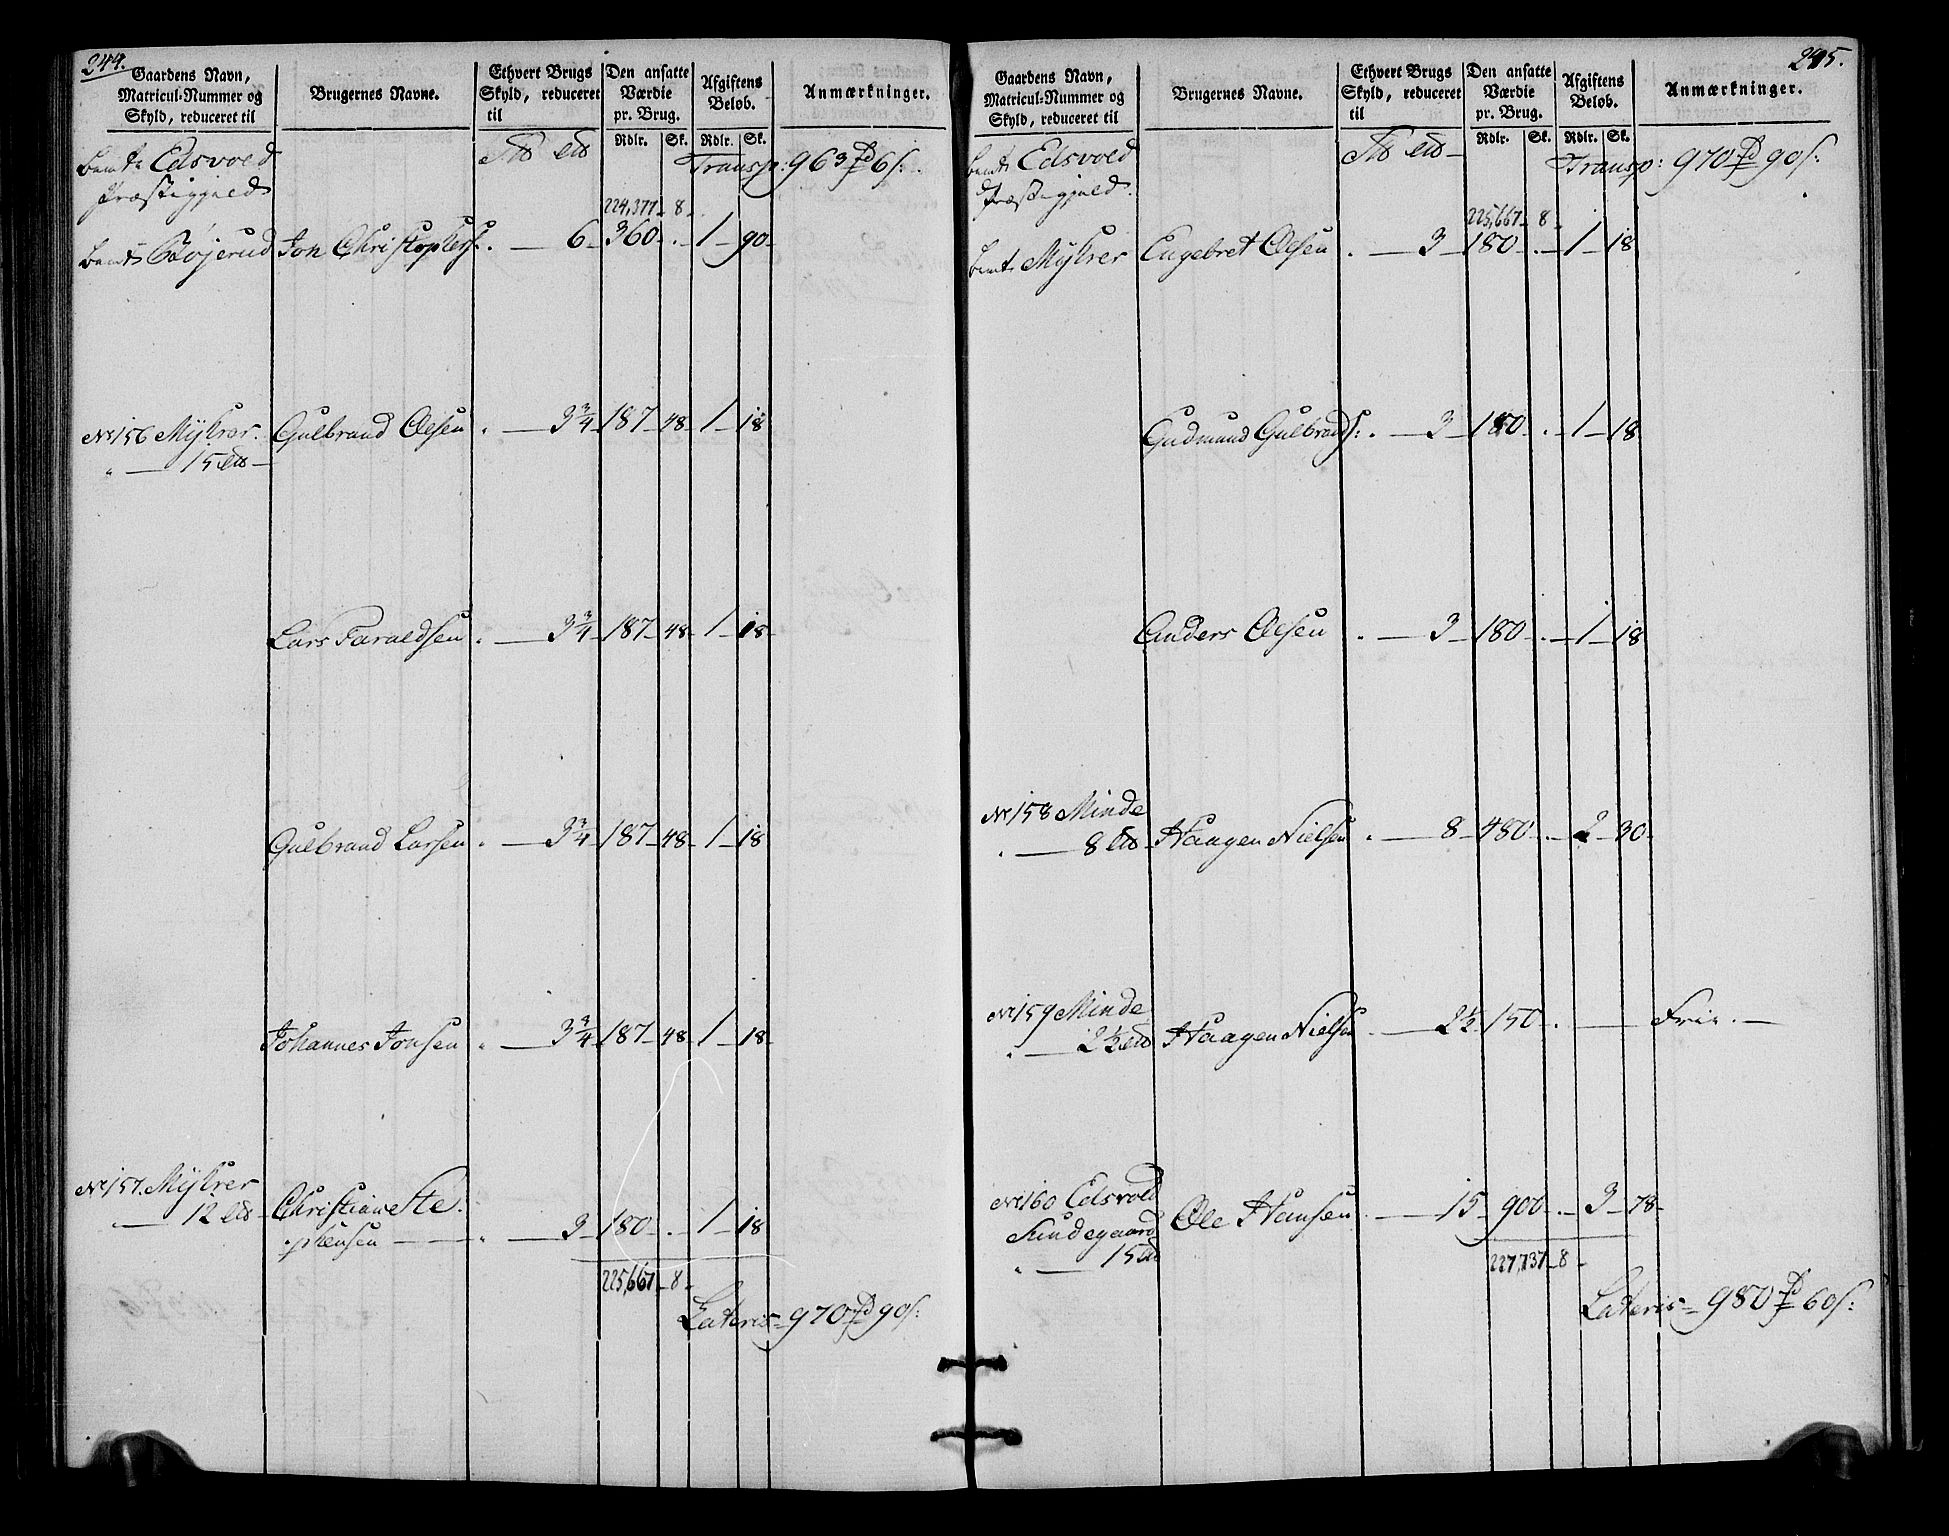 244.
Gaardens Navn,
Matricul-Nummer og
Skyld, reduceret til
Brugernes Navne.
Ethvert Brugs
Skyld, reduceret
til
Den ansatte
Værdie
pr. Brug.
Rdlr. Sk.
Afgiftens
Beløb.
Rdlr. Sk.
Anmærkninger.
Edsvold
Præstegjeld
Transp: 963 6 s.
224,377 - 8 -
Bøjerud Jon Christophers: . — 6 - 360 - . - 1 - 90 -
No 156 Mÿhrer. Gulbrand Olsen . — 3 3/4 187 - 48 - 1 - 18
" — 15
Lars Taraldsen . — 3 3/4 187 - 48 - 1 - 18 -
Gulbrand Larsen . — 3 3/4 187 - 48 - 1 - 18
Johannes Jonsen . — 3 3/4 187 - 48 - 1 - 18 -
No 157. Mÿhrer Christian Ste.
— 12
phensen — — " — 3 180 - . - 1 - 18
225,667 - 8 -
Lateris - 970 90 s:
245.
Gaardens Navn,
Matricul-Nummer og
Skyld, reduceret til
Brugernes Navne.
Ethvert Brugs
Skyld, reduceret
til
Den ansatte
Værdie
pr. Brug.
Rdlr. Sk.
Afgiftens
Beløb.
Rdlr. Sk.
Anmærkninger.
Edsvold
Præstegjeld.
Transp: 970 90 s:
225,667 - 8 -
Mÿhrer Engebret Olsen . — 3 - 180 - . - 1 - 18
Gudmund Gulbrands: . — 3 - 180 - . - 1 - 18
Anders Olsen . — 3 - 180 - . - 1 - 18
No 158 Minde
. — 8 Haagen Nielsen . — 8 - 480 - . - 2 - 30 -
No 159 Minde
" — 2 1/2 Haagen Nielsen . — 2 1/2 150 - . — Frie. —
No 160 Edsvold
Sundegaard Ole Hansen . — 15 - 900 - . - 3 - 78 -
" — 15
227,737 - 8 -
Lateris - 980 60 s: